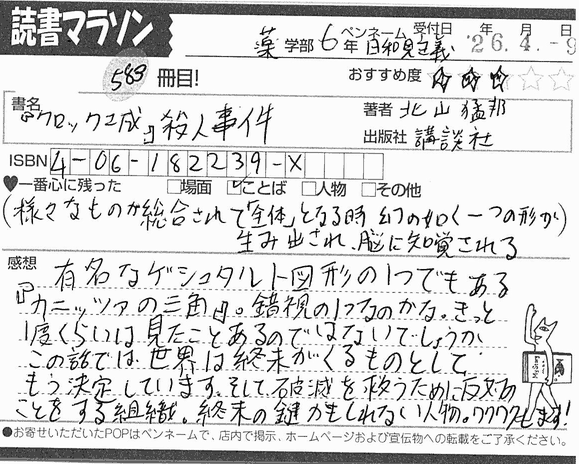 読書マラソン
薬 学部 6 年 ペンネーム 日和見主義 受付日 '26 年 4 月 -9 日
589 冊目!
おすすめ度 ☆☆☆☆☆
書名
『クロック城』殺人事件
著者 北山猛邦
出版社 講談社
ISBN 4-06-182239-X
♥一番心に残った □場面 ☑ことば □人物 □その他
(様々なものが総合されて「全体」となる時 幻の如く一つの形が)
生み出され、脳に知覚される
感想
有名なゲシュタルト図形の1つでもある
『カニッツァの三角』。錯視の1つなのかな。きっと
1度くらいは見たことあるのではないでしょうか
この話では、世界は終末がくるものとして
もう決定しています。そして破滅を救うために反対の
ことをする組織。終末の鍵かもしれない人物。ワクワクします!
●お寄せいただいたPOPはペンネームで、店内で掲示、ホームページおよび宣伝物への転載をご了承ください。